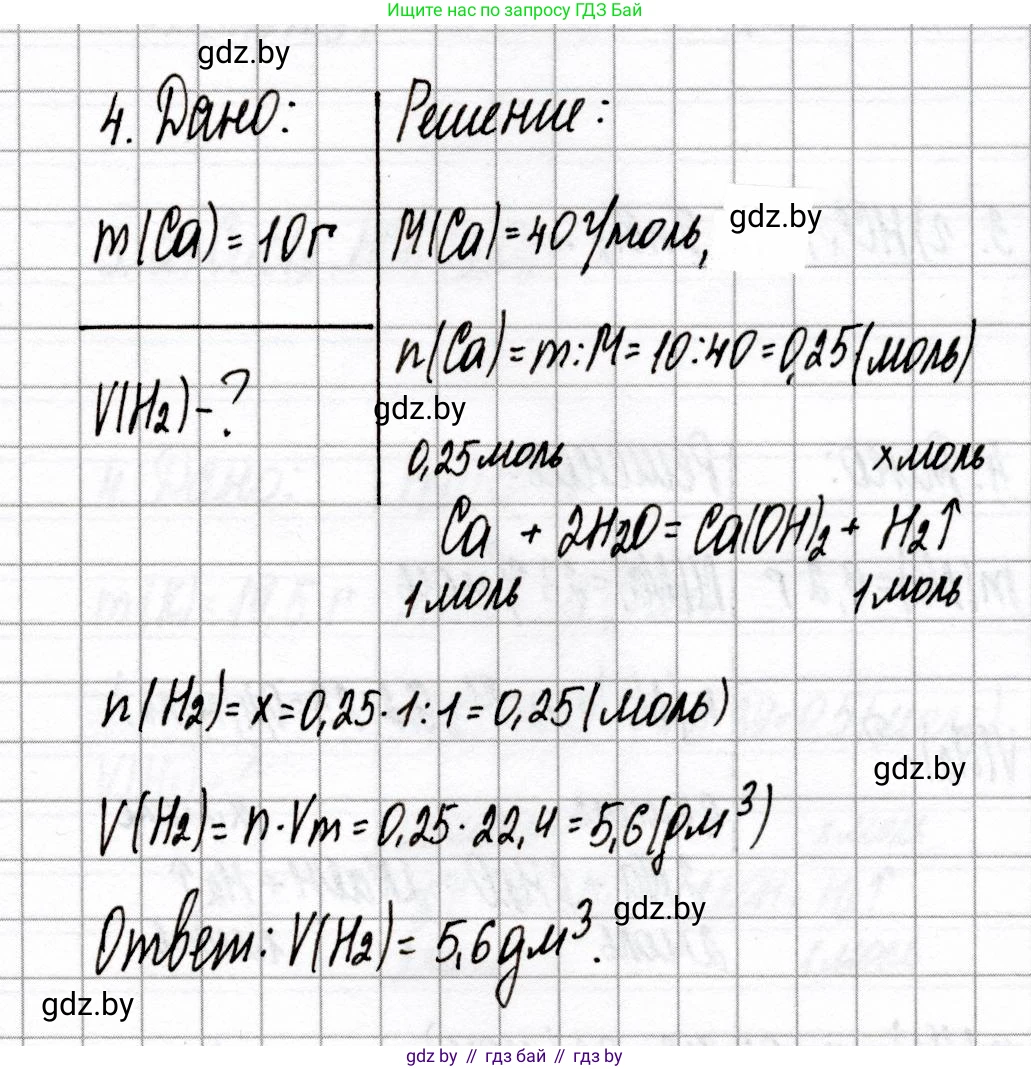 Ищите нас по запросу ГДЗ Бай
gdz.by
4. Дано:
Решение:
m(Ca) = 10 г
M(Ca) = 40 г/моль,
gdz.by
n(Ca) = m : M = 10 : 40 = 0,25 (моль)
V(H₂) - ?
gdz.by
0,25 моль x моль
Ca + 2H₂O = Ca(OH)₂ + H₂↑
1 моль 1 моль
n(H₂) = x = 0,25 · 1 : 1 = 0,25 (моль)
gdz.by
V(H₂) = n · Vm = 0,25 · 22,4 = 5,6 (дм³)
gdz.by
Ответ: V(H₂) = 5,6 дм³.
gdz.by
gdz by // гдз бай // гдз by